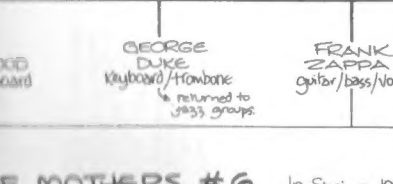 GEORGE
DUKE
Keyboard/trombone
returned to
jazz groups.
FRANK
ZAPPA
guitar/bass/vo
MOTHERS #6
In